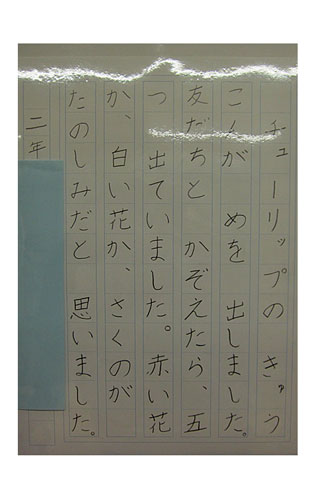 チューリップの きゅう
こんが めを 出しました。
友だちと かぞえたら、五
つ 出ていました。赤い花
か、白い花か、さくのが
たのしみだと 思いました。
二年